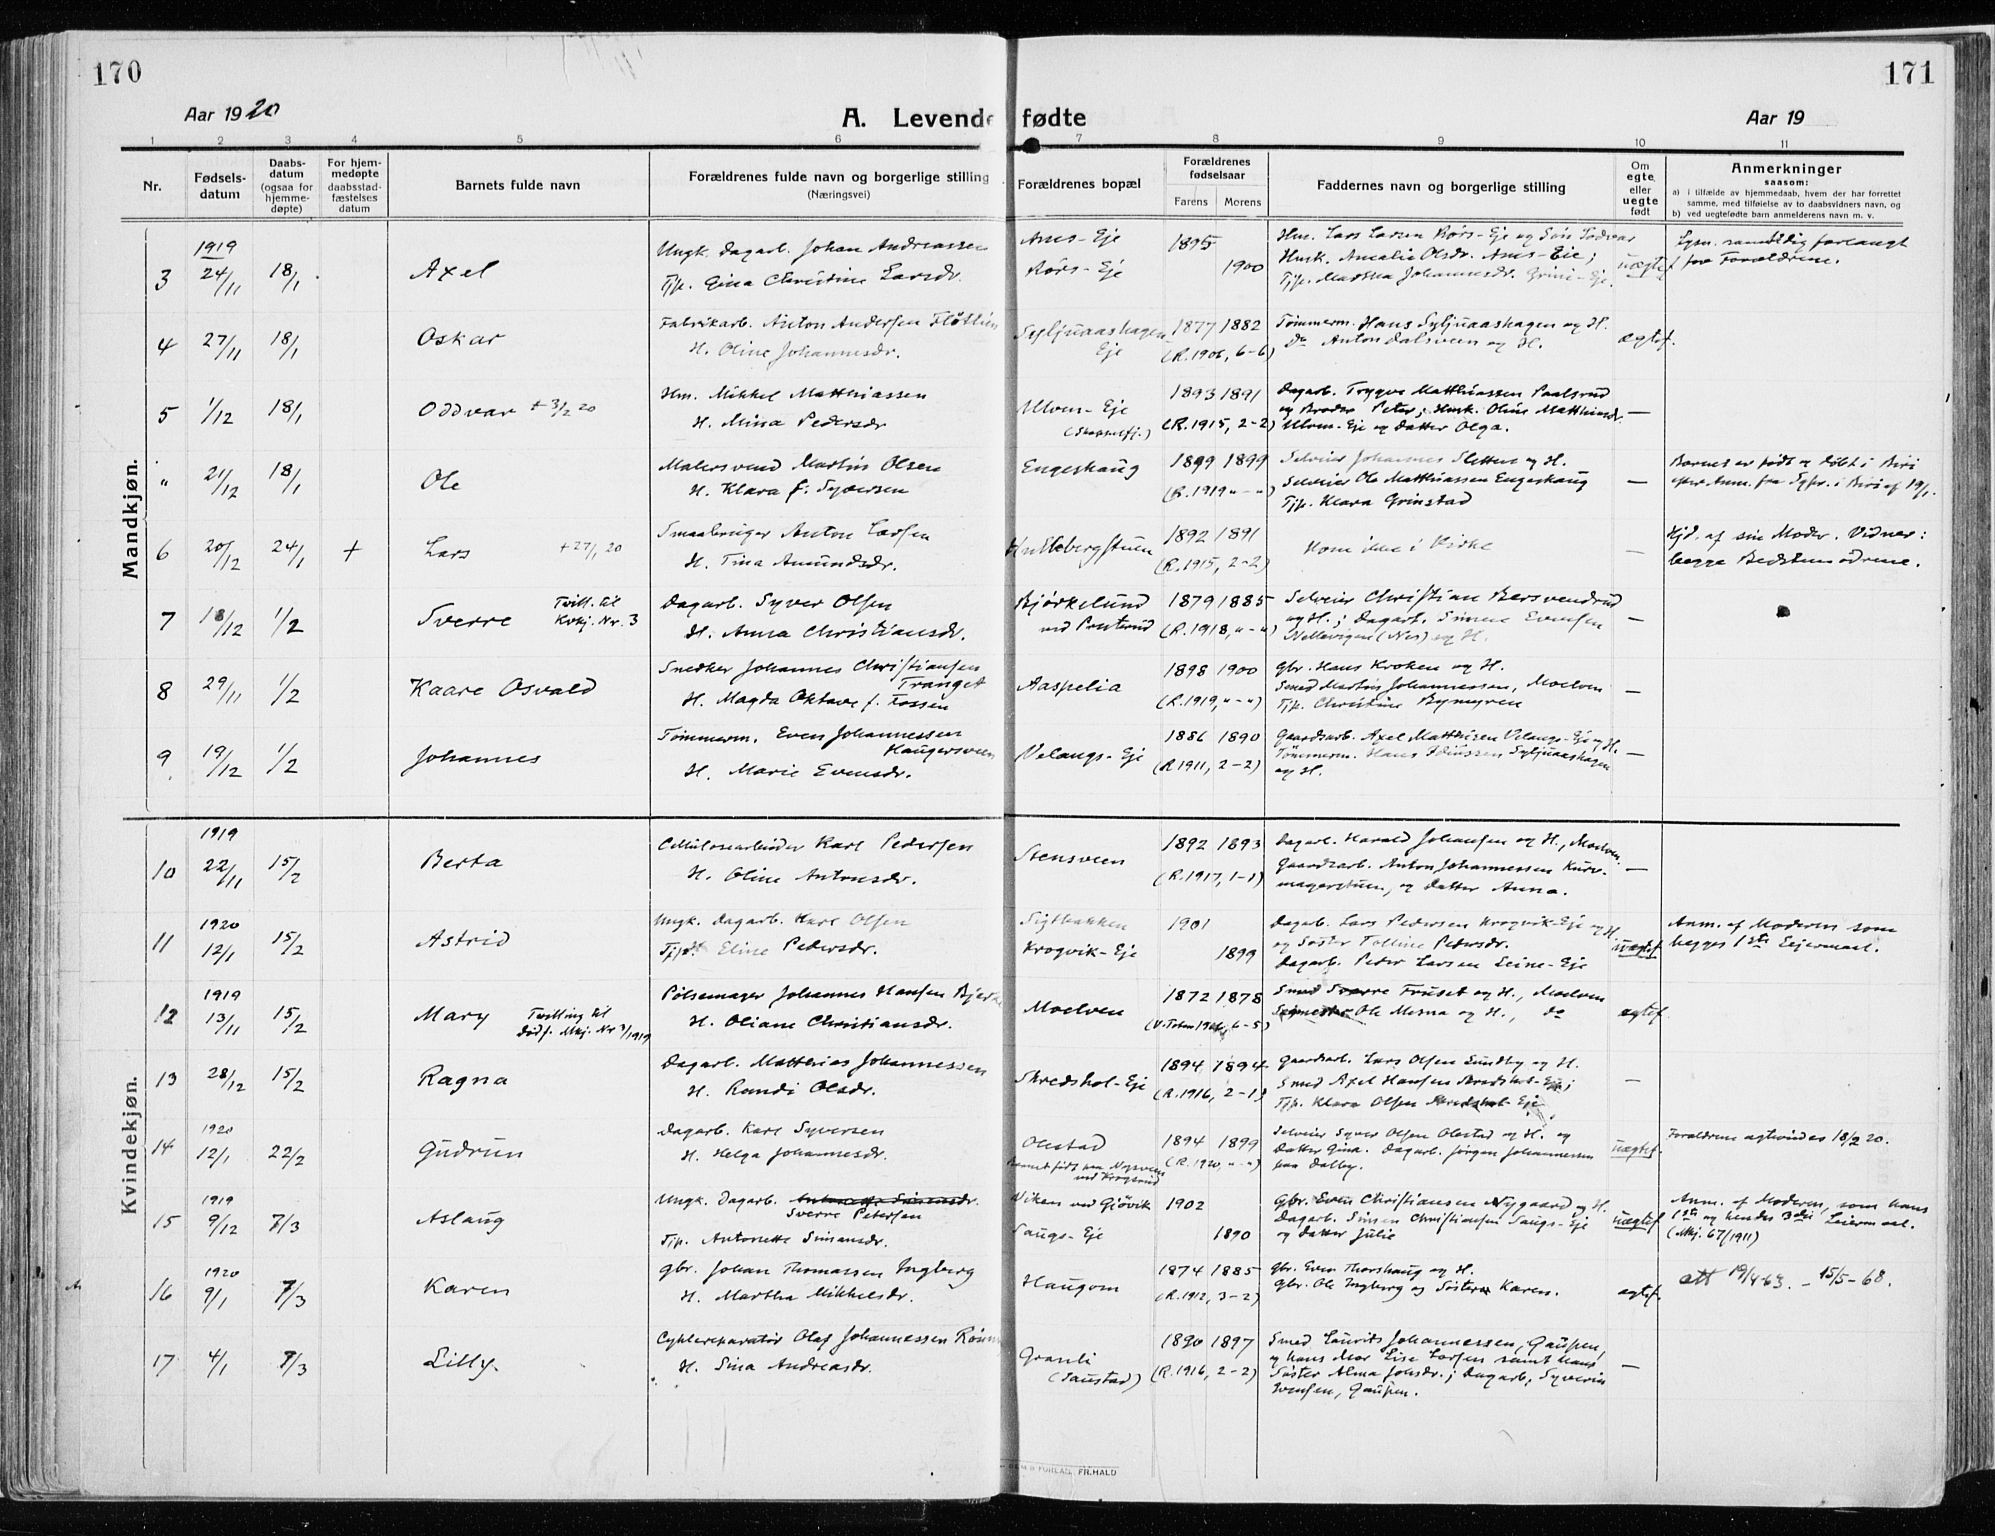 170
171
Aar 1920
A. Levende fødte
Aar 19
1 2 3 4 5 6 7 8 9 10 11
Nr.
Fødsels-
datum
Daabs-
datum
(ogsaa for
hjemme-
døpte)
For hjem-
medøpte
daabsstad-
fæstelses
datum
Barnets fulde navn
Forældrenes fulde navn og borgerlige stilling
(Næringsvei)
Forældrenes bopæl
Forældrenes
fødselsaar
Farens Morens
Faddernes navn og borgerlige stilling
Om
egte
eller
uegte
født
Anmerkninger
saasom:
a) i tilfælde av hjemmedaab, hvem der har forrettet
samme, med tilføielse av to daabsvidners navn, og
b) ved uegtefødte barn anmelderens navn m. v.
Mandkjøn.
1919
3 24/11 18/1 Axel
Ungk. Dagarb. Johan Andreassen
Tjp. Gina Christine Larsdr.
Anes-Eje
Rørs-Eje
1895
1900
Hm. Lars Larsen Rørs-Eje og Søn
Husk. Amalie Olsdr. Anes-Eje;
Tjp. Martha Johannesdr. Grini-Eje.
uægtef.
Lysn. samtidig forlangt
fra Forældrene.
4 27/11 18/1 Oskar
Fabrikarb. Anton Andersen
H. Oline Johannesdr.
Syljuaashagen
Eje
1877 1882
(R. 1906, 6-6)
Tømmerm. Hans Syljuaashagen og H.
Do Anton Dalsveen og H.
ægtef.
5 1/12 18/1 Oddvar + 3/2 20
Hm. Mikkel Matthiassen
H. Mina Pedersdr
Ulven-Eje
1893 1891
(R. 1915, 2-2)
Dagarb. Trygve Matthiassen Paalsrud
og Broder Peter; Husk. Oline Matthiasdr.
Ulven-Eje og Datter Olga.
—
" 21/12 18/1 Ole
Malersvend Martin Olsen
H. Klara f. Syversen
Engeshaug
1899 1899
(R. 1919 "-")
Selveier Johannes Sletten og H.
Selveier Ole Matthiassen Engeshaug
Tjp. Klara Grinstad
—
Barnet er født og døbt i Biri
efter Anm. fra Sgpr. i Biri af 19/1.
6 20/12 24/1 + Lars + 27/1 20
Smaabruger Anton Larsen
H. Tina Amundsdr.
Hullebergstuen
1892 1891
(R. 1915, 2-2)
Kom ikke i Kirke
—
Hjd. af sin Moder. Vidner:
begge Bedstemødrene.
7 18/12 1/2 Sverre Tvill. til
Kvkj. Nr. 3
Dagarb. Syver Olsen
H. Anna Christiansdr.
Bjørkelund
ved Præsterud
1879 1885
(R. 1918, "-")
Selveier Christian Bersvendrud
og H.; Dagarb. Simen Evensen
(Nes) og H.
—
8 29/11 1/2 Kaare Osvald
Snedker Johannes Christiansen
Tranget
H. Magda Oktave f. Fossen
Aaspelia
1898 1900
(R. 1919, "-")
Gbr. Hans Kroken og H.
Smed Martin Johannessen, Moelven
Tjp. Christine Bymyren
—
9 19/12 1/2 Johannes
Tømmerm. Even Johannessen
Haugersveen
H. Marie Evensdr.
Velangs-Eje
1886 1890
(R. 1911, 2-2)
Gaardsarb. Axel Mathisen Velangs-Eje og H.
Tømmerm. Hans Syljuaashagen
og H.
—
Kvindekjøn.
1919
10 22/11 15/2 Berta
Cellulosearbeider Karl Pedersen
H. Oline Antonsdr.
Stensveen
1892 1893
(R. 1917, 1-1)
Dagarb. Harald Johansen og H., Moelven
Gaardsarb. Anton Johannessen Kurv-
magerstuen, og Datter Anna.
—
1920
11 12/1 15/2 Astrid
Ungk. Dagarb. Karl Olsen
Tjp. Eline Pedersdr.
Sigtbakken
Krogvik-Eje
1901
1899
Dagarb. Lars Pedersen Krogvik-Eje og H.
og Søster Tolline Pedersdr.
Dagarb. Peder Larsen Leine-Eje
uægtef.
Anm. af Moderen som
begges 1ste Leiermaal.
1919
12 13/11 15/2 Mary Tvilling til
dødf. Mkj. Nr 3/1919
Pølsemager Johannes Hansen
H. Oliane Christiansdr.
Moelven
1872 1878
(V. Toten 1906, 6-5)
Smed Sverre Fruset og H., Moelven
Ole Mesna og H., do
ægtef.
13 28/12 15/2 Ragna
Dagarb. Matthias Johannessen
H. Randi Olsdr.
Skredshol-Eje
1894 1894
(R. 1916, 2-1)
Gaardsarb. Lars Olsen Lundby og H.
Smed Axel Hansen Skredshol-Eje;
Tjp. Klara Olsen Skredshol-Eje
—
1920
14 12/1 22/2 Gudrun
Dagarb. Karl Syversen
H. Helga Johannesdr.
Olestad
Barnet født paa Nysveen
ved Krogsrud
1894 1899
(R. 1920, "-")
Selveier Syver Olsen Olestad og H. og
Datter Gina. Dagarb. Jørgen Johannessen
paa Dalby.
uægtef.
Forældrene ægteviedes 18/2 20.
1919
15 9/12 7/3 Aslaug
Ungk. Dagarb. Antonette Simensdr.
Sverre Petersen
Tjp. Antonette Simensdr.
Viken ved Gjøvik
Saugs-Eje
1902
1890
Gbr. Even Christiansen Nygaard og H.
Dagarb. Simen Christiansen Saugs-Eje
og Datter Julie
uægtef.
Anm. af Moderen, som hans
1ste og hendes 3die Leiermaal.
(Mkj. 67/1911)
1920
16 9/1 7/3 Karen
Gbr. Johan Thomassen Ingberg
H. Martha Mikkelsdr.
Haugom
1874 1885
(R. 1912, 3-2)
Gbr. Even Thorshaug og H.
Gbr. Ole Ingberg og Søster Karen.
ægtef.
att 19/4-63. – 15/5-68.
17 4/1 7/3 Lilly.
Cyklereparatør Olaf Johannessen
H. Sina Andreasdr.
Granli
(Saustad)
1890 1897
(R. 1916, 2-2)
Smed Laurits Johannessen, Gaupen,
og hans Mor Lise Larsen samt hans
Søster Alma Johsdr.; Dagarb. Syverin
Iversen, Gaupen.
—
FORLAG, FR.HALD